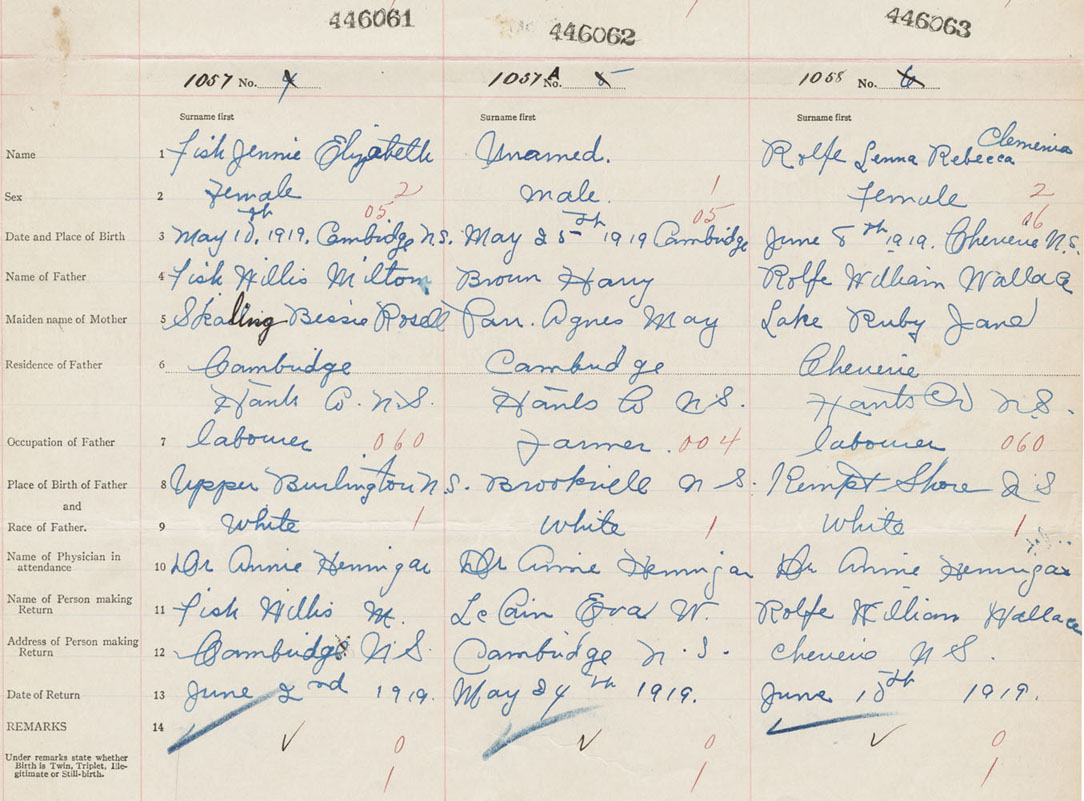 446061 446062 446063
1057 No. 4 1057A No. 5 1058 No. 6
Surname first Surname first Surname first
Clemenia
Name 1 Fish Jennie Elizabeth Unamed. Rolfe Lenna Rebecca
Sex 2 Female 2 male. 1 Female 2
th 05 th 05 th 06
Date and Place of Birth 3 May 10, 1919. Cambidge N.S. May 25 1919 Cambidge June 8 1919. Cheverie N.S.
Name of Father 4 Fish Willis Milton Brown Harry Rolfe William Wallace
Maiden name of Mother 5 Skaling Bessie Rosell Parr. Agnes May Lake Ruby Jane
Residence of Father 6 Cambridge Cambridge Cheverie
Hants Co. N.S. Hants Co N.S. Hants Co N.S.
Occupation of Father 7 labourer 060 Farmer. 004 labourer 060
Place of Birth of Father 8 Upper Burlington N.S. Brookville N S. Kempt Shore N S
and
Race of Father. 9 White 1 White 1 White 1
Name of Physician in
attendance 10 Dr Annie Hennigar Dr Annie Hennigar Dr Annie Hennigar
Name of Person making
Return 11 Fish Willis M. Le Cain Eva W. Rolfe William Wallace
Address of Person making
Return 12 Cambridge N.S. Cambridge N.S. Cheverie N S.
Date of Return 13 June 2nd 1919. May 24th 1919. June 10th 1919.
REMARKS 14
0 0 0
Under remarks state whether
Birth is Twin, Triplet, Ille-
gitimate or Still-birth. 1 1 1